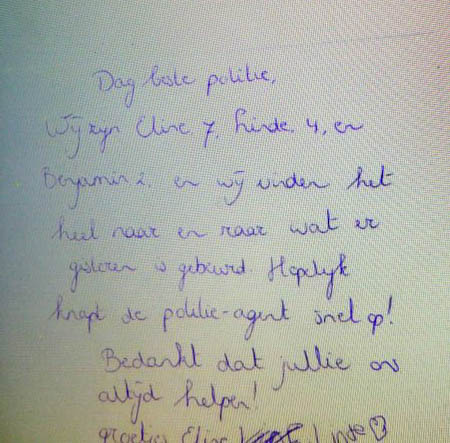 Dag beste politie,
Wij zijn Eline 7, Linde 4, en
Benjamin 2, en wij vinden het
heel naar en raar wat er
gisteren is gebeurd. Hopelijk
knapt de politie-agent snel op!
Bedankt dat jullie ons
altijd helpen!
groetjes Eline Linde